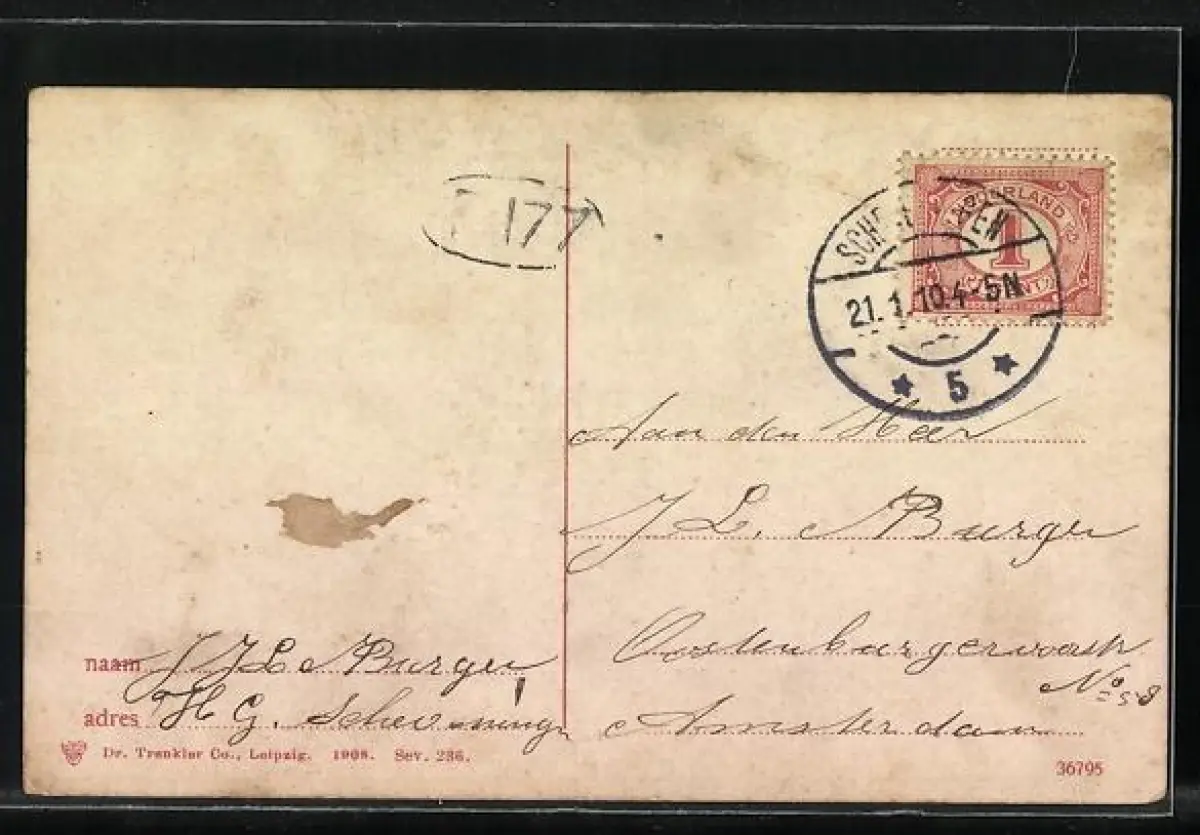 177
NEDERLAND
1
CENT
SCHEVENINGEN
21.1.10.4-5N
5
Aan den Heer
J L. Burger
Oostenburgervoorstr
No 58
Amsterdam
naam J L Burger
adres H G. Scheveningen
Dr. Trenkler Co., Leipzig. 1908. Sev. 236.
36795